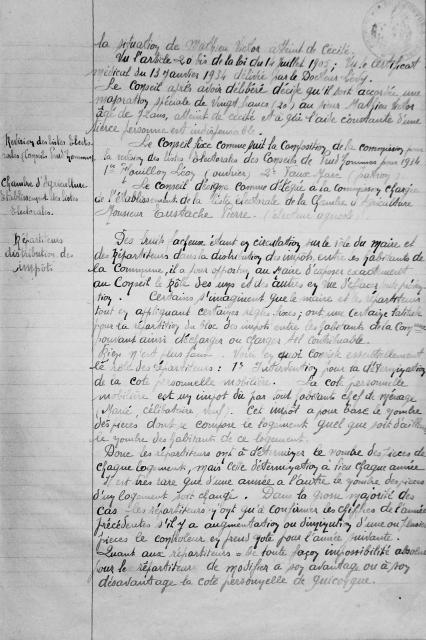 la situation de Mathieu Victor atteint de Cécité.
Vu l'article 20 bis de la loi du 14 juillet 1905; Vu le certificat
médical du 13 janvier 1934 délivré par le Docteur Lévy.
Le Conseil après avoir délibéré décide qu'il soit accordé une
majoration spéciale de vingt francs (20) au sieur Mathieu Victor
âgé de ans, atteint de cécité et à qui l'aide constante d'une
tierce personne est indispensable.
Révision des listes Electo-
rales (Conseils Prud'hommes)
Le Conseil fixe comme suit la Composition de la commission pour
la révision des listes Electorales des Conseils de Prud'hommes pour 1934
1° Fouillon Léon (ouvrier) 2° Vaux Marc (patron).
Chambre d'Agriculture
Etablissement des listes
Electorales.
Le Conseil désigne comme délégué à la commission chargée
de l'Etablissement de la liste électorale de la Chambre d'Agriculture
Monsieur Eustache Pierre. (Electeur agricole)
Répartiteurs
distribution des
impôts
Des bruits facheux étant en circulation sur le rôle du maire et
des Répartiteurs dans la distribution des impôts entre les habitants de
la Commune, il a paru opportun au Maire d'exposer exactement
au Conseil le rôle des uns et des autres en vue d'effacer toute
Certains s'imaginent que le maire et les répartiteurs
tout en appliquant certaines règles fixes; ont une certaine latitude
pour la répartition du bloc des impôts entre les habitants de la Commune
pouvant ainsi décharger ou charger tel contribuable.
Rien n'est plus faux. Voici en quoi consiste essentiellement
le rôle des répartiteurs: 1° Intervention pour la détermination
de la cote personnelle mobilière. La cote personnelle
mobilière est un impôt dû par tout habitant chef de ménage
(Marié, célibataire, veuf). Cet impôt a pour base le nombre
des pièces dont se compose le logement quel que soit d'ailleurs
le nombre des habitants de ce logement.
Donc les répartiteurs ont à déterminer le nombre des pièces de
chaque logement, mais cette détermination a lieu chaque année
Il est très rare que d'une année à l'autre le nombre des pièces
d'un logement soit changé. Dans la grosse majorité des
cas les répartiteurs n'ont qu'à confirmer les chiffres de l'année
précédente s'il y a augmentation ou diminution d'une ou plusieurs
pièces le contrôleur en prend note pour l'année suivante.
Quant aux répartiteurs de toute façon impossibilité absolue
pour le répartiteur de modifier à son avantage ou à son
désavantage la cote personnelle de quiconque.